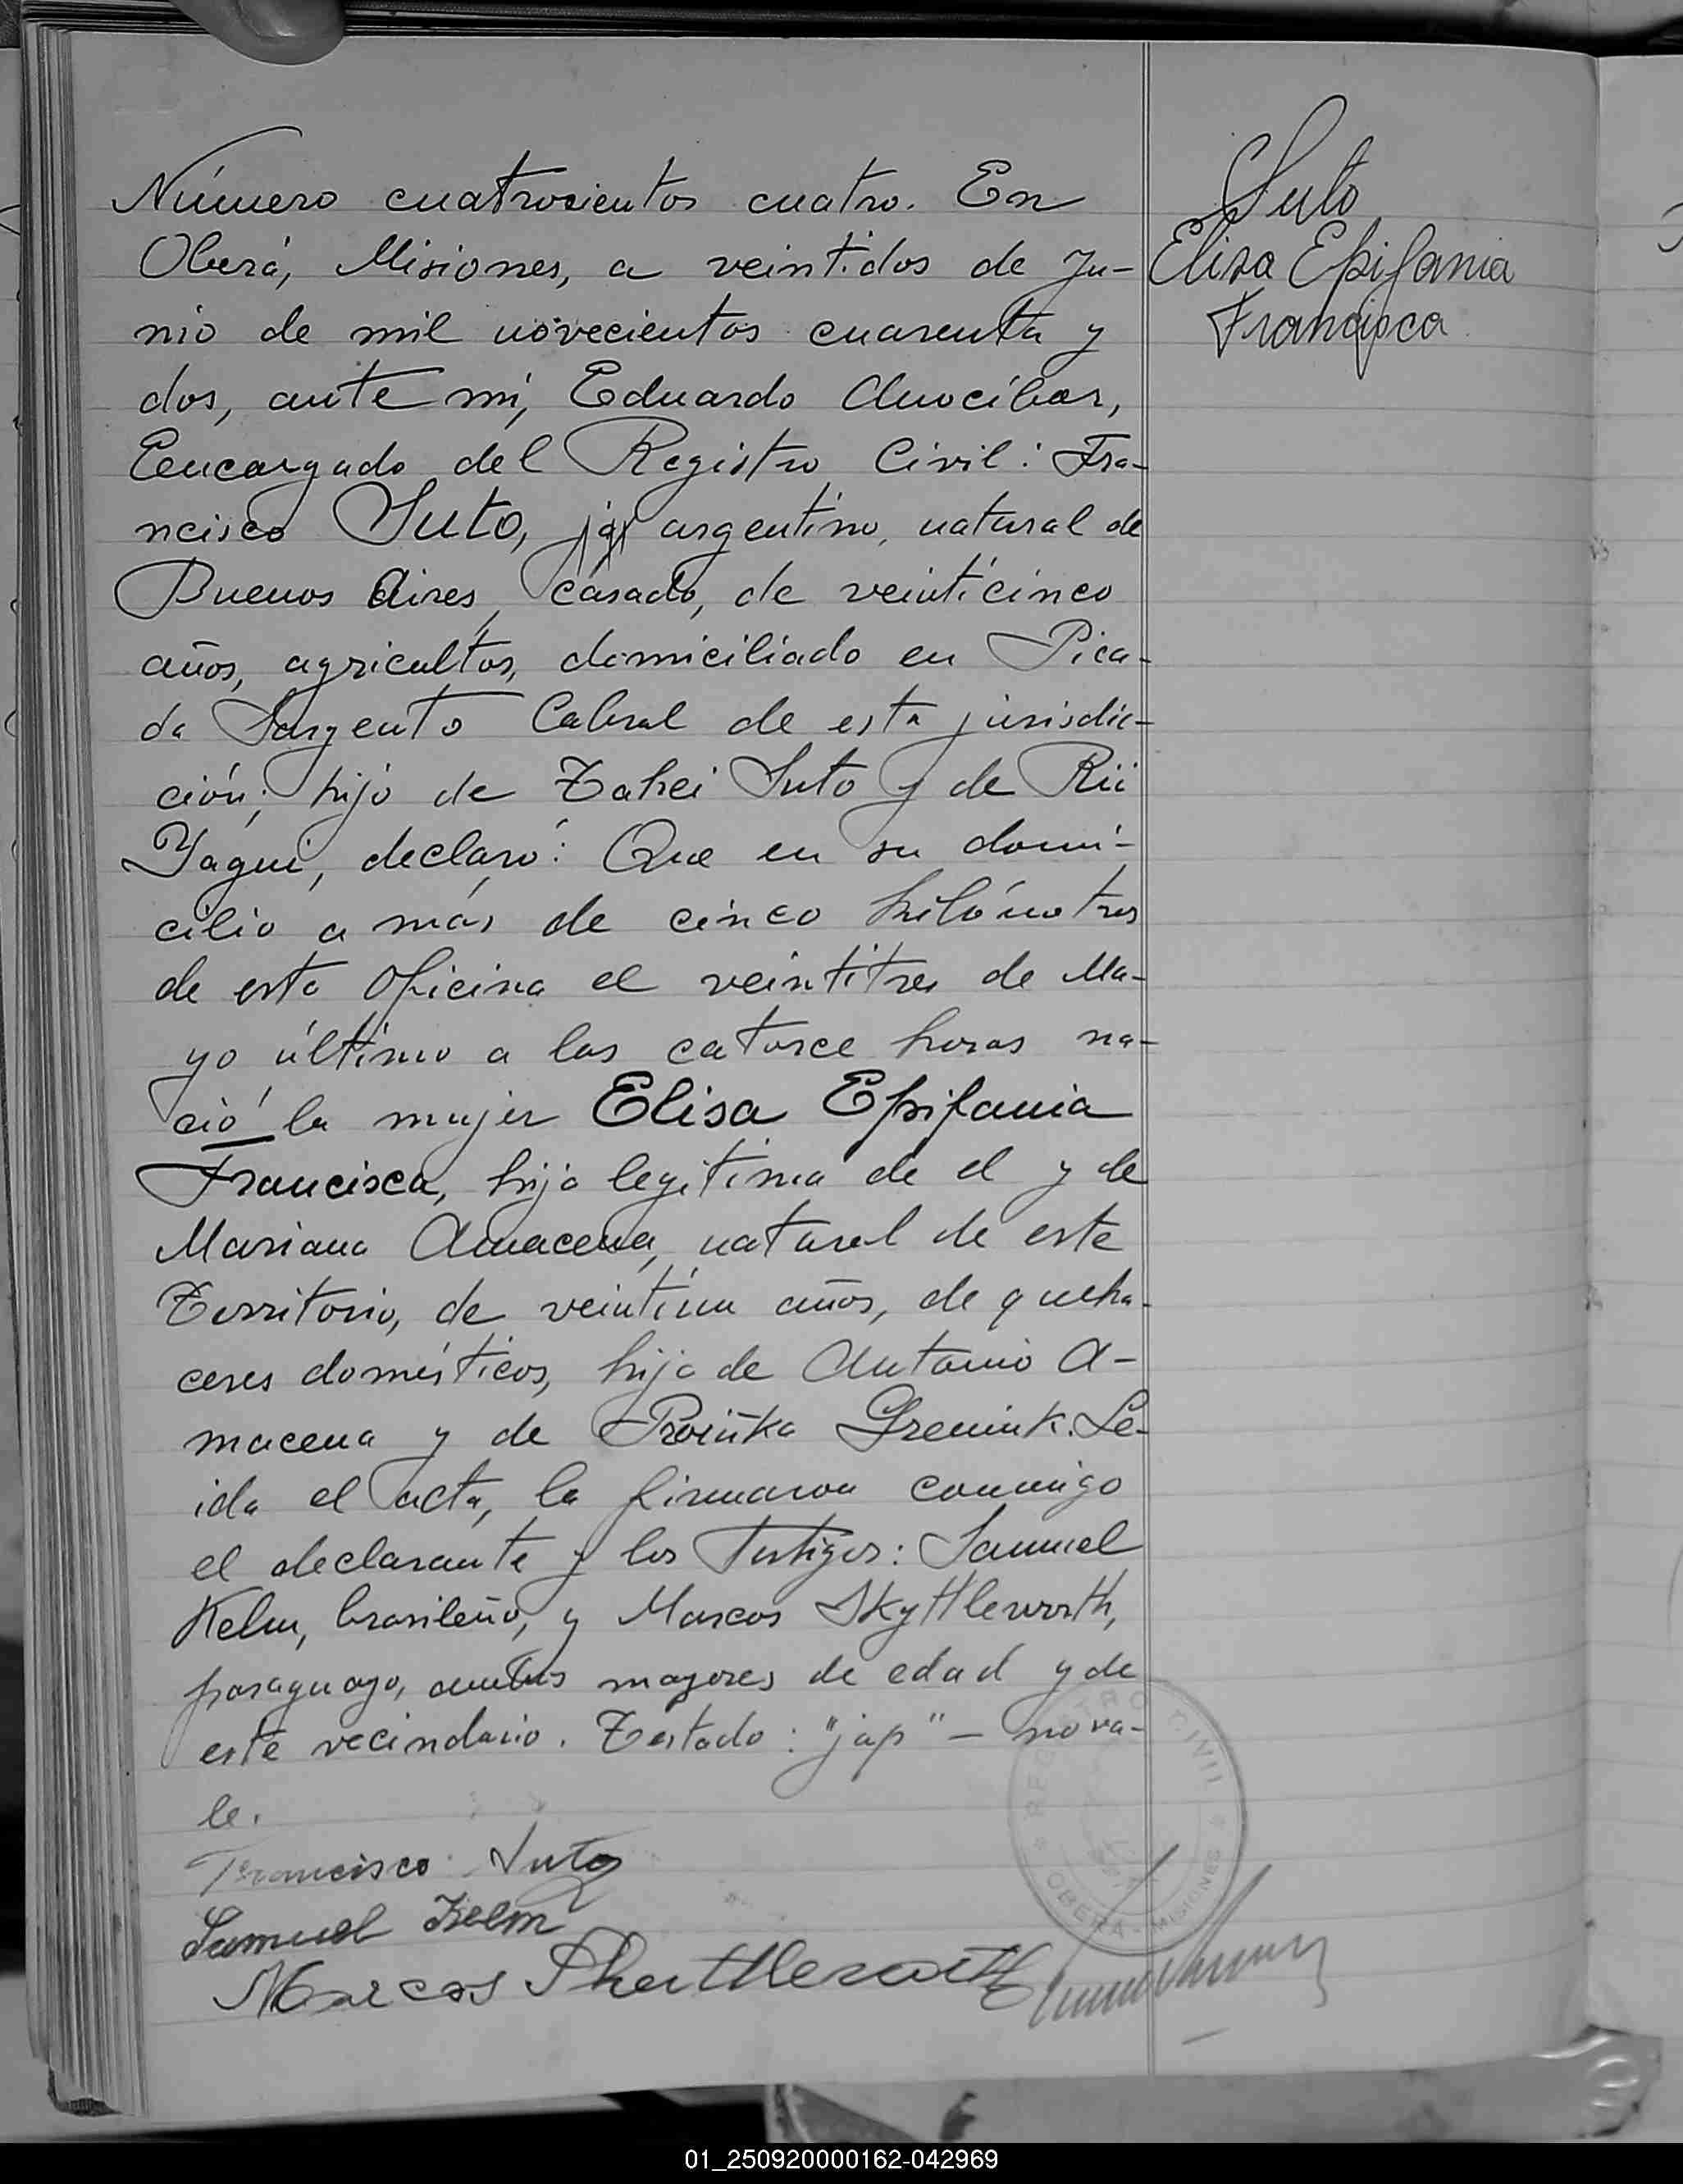 Número cuatrocientos cuatro. En
Oberá, Misiones, a veintidos de Ju-
nio de mil novecientos cuarenta y
dos, ante mi, Eduardo Anocíbar,
Encargado del Registro Civil: Fra-
ncisco Suto, jap argentino, natural de
Buenos Aires, casado, de veinticinco
años, agricultor, domiciliado en Pica-
da Sargento Cabral de esta jurisdic-
ción; hijo de Tahei Suto y de Rii
Yagui, declaró: Que en su domi-
cilio a más de cinco kilómetros
de esta Oficina el veintitres de Ma-
yo último a las catorce horas na-
ció la mujer Elisa Epifania
Francisca, hija legitima de el y de
Mariana Amacena, natural de este
Territorio, de veintiun años, de queha-
ceres domésticos, hija de Antonio A-
macena y de Gremink. Le-
ida el acta, la firmaron conmigo
el declarante y los testigos: Samuel
Kelm, brasileño, y Marcos Skyttleworth,
paraguayo, ambos mayores de edad y de
este vecindario. Testado: "jap" - no va-
le.
Francisco Suto
Samuel Kelm
Marcos Shuttleworth
Suto
Elisa Epifania
Francisca
REGISTRO CIVIL
OBERA - MISIONES
01_250920000162-042969